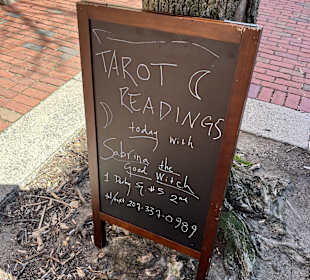 TAROT
READINGS
today with
Sabrina the
Good Witch
1 Derby Sq #5 2nd
txt/call 207-337-0989